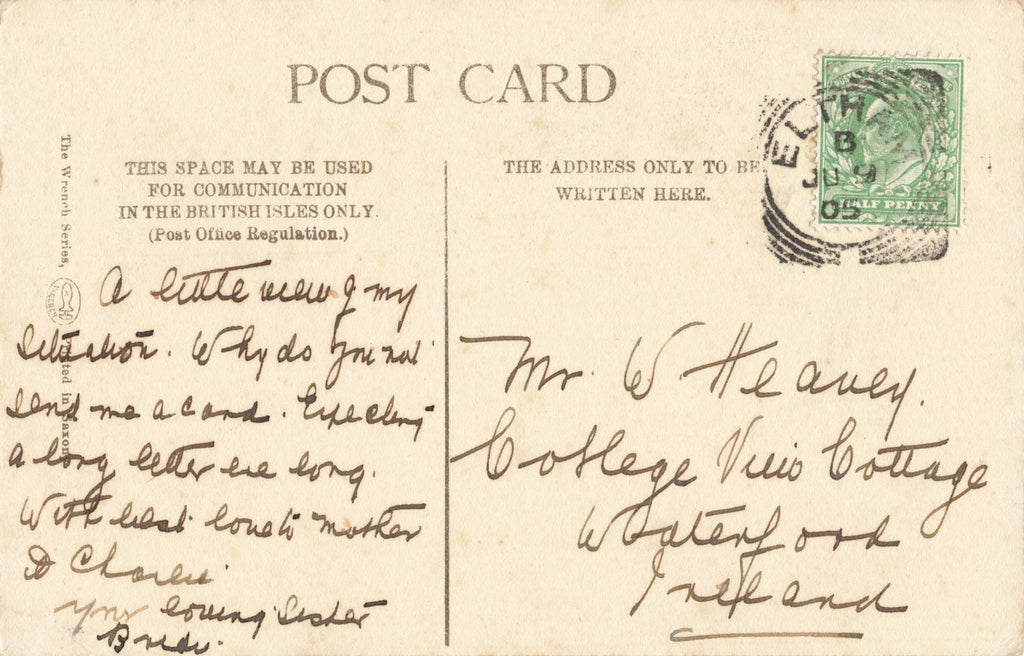 POST CARD
THIS SPACE MAY BE USED
FOR COMMUNICATION
IN THE BRITISH ISLES ONLY.
(Post Office Regulation.)
The Wrench Series,
Printed in Saxony
A little view of my
situation. Why do you not
send me a card. Expecting
a long letter ere long.
With best love to Mother
& Charlie
Your loving Sister
THE ADDRESS ONLY TO BE
WRITTEN HERE.
ELTHAM
B
JU 9
05
HALF PENNY
Mr. W. Heavey.
College View Cottage
Waterford
Ireland